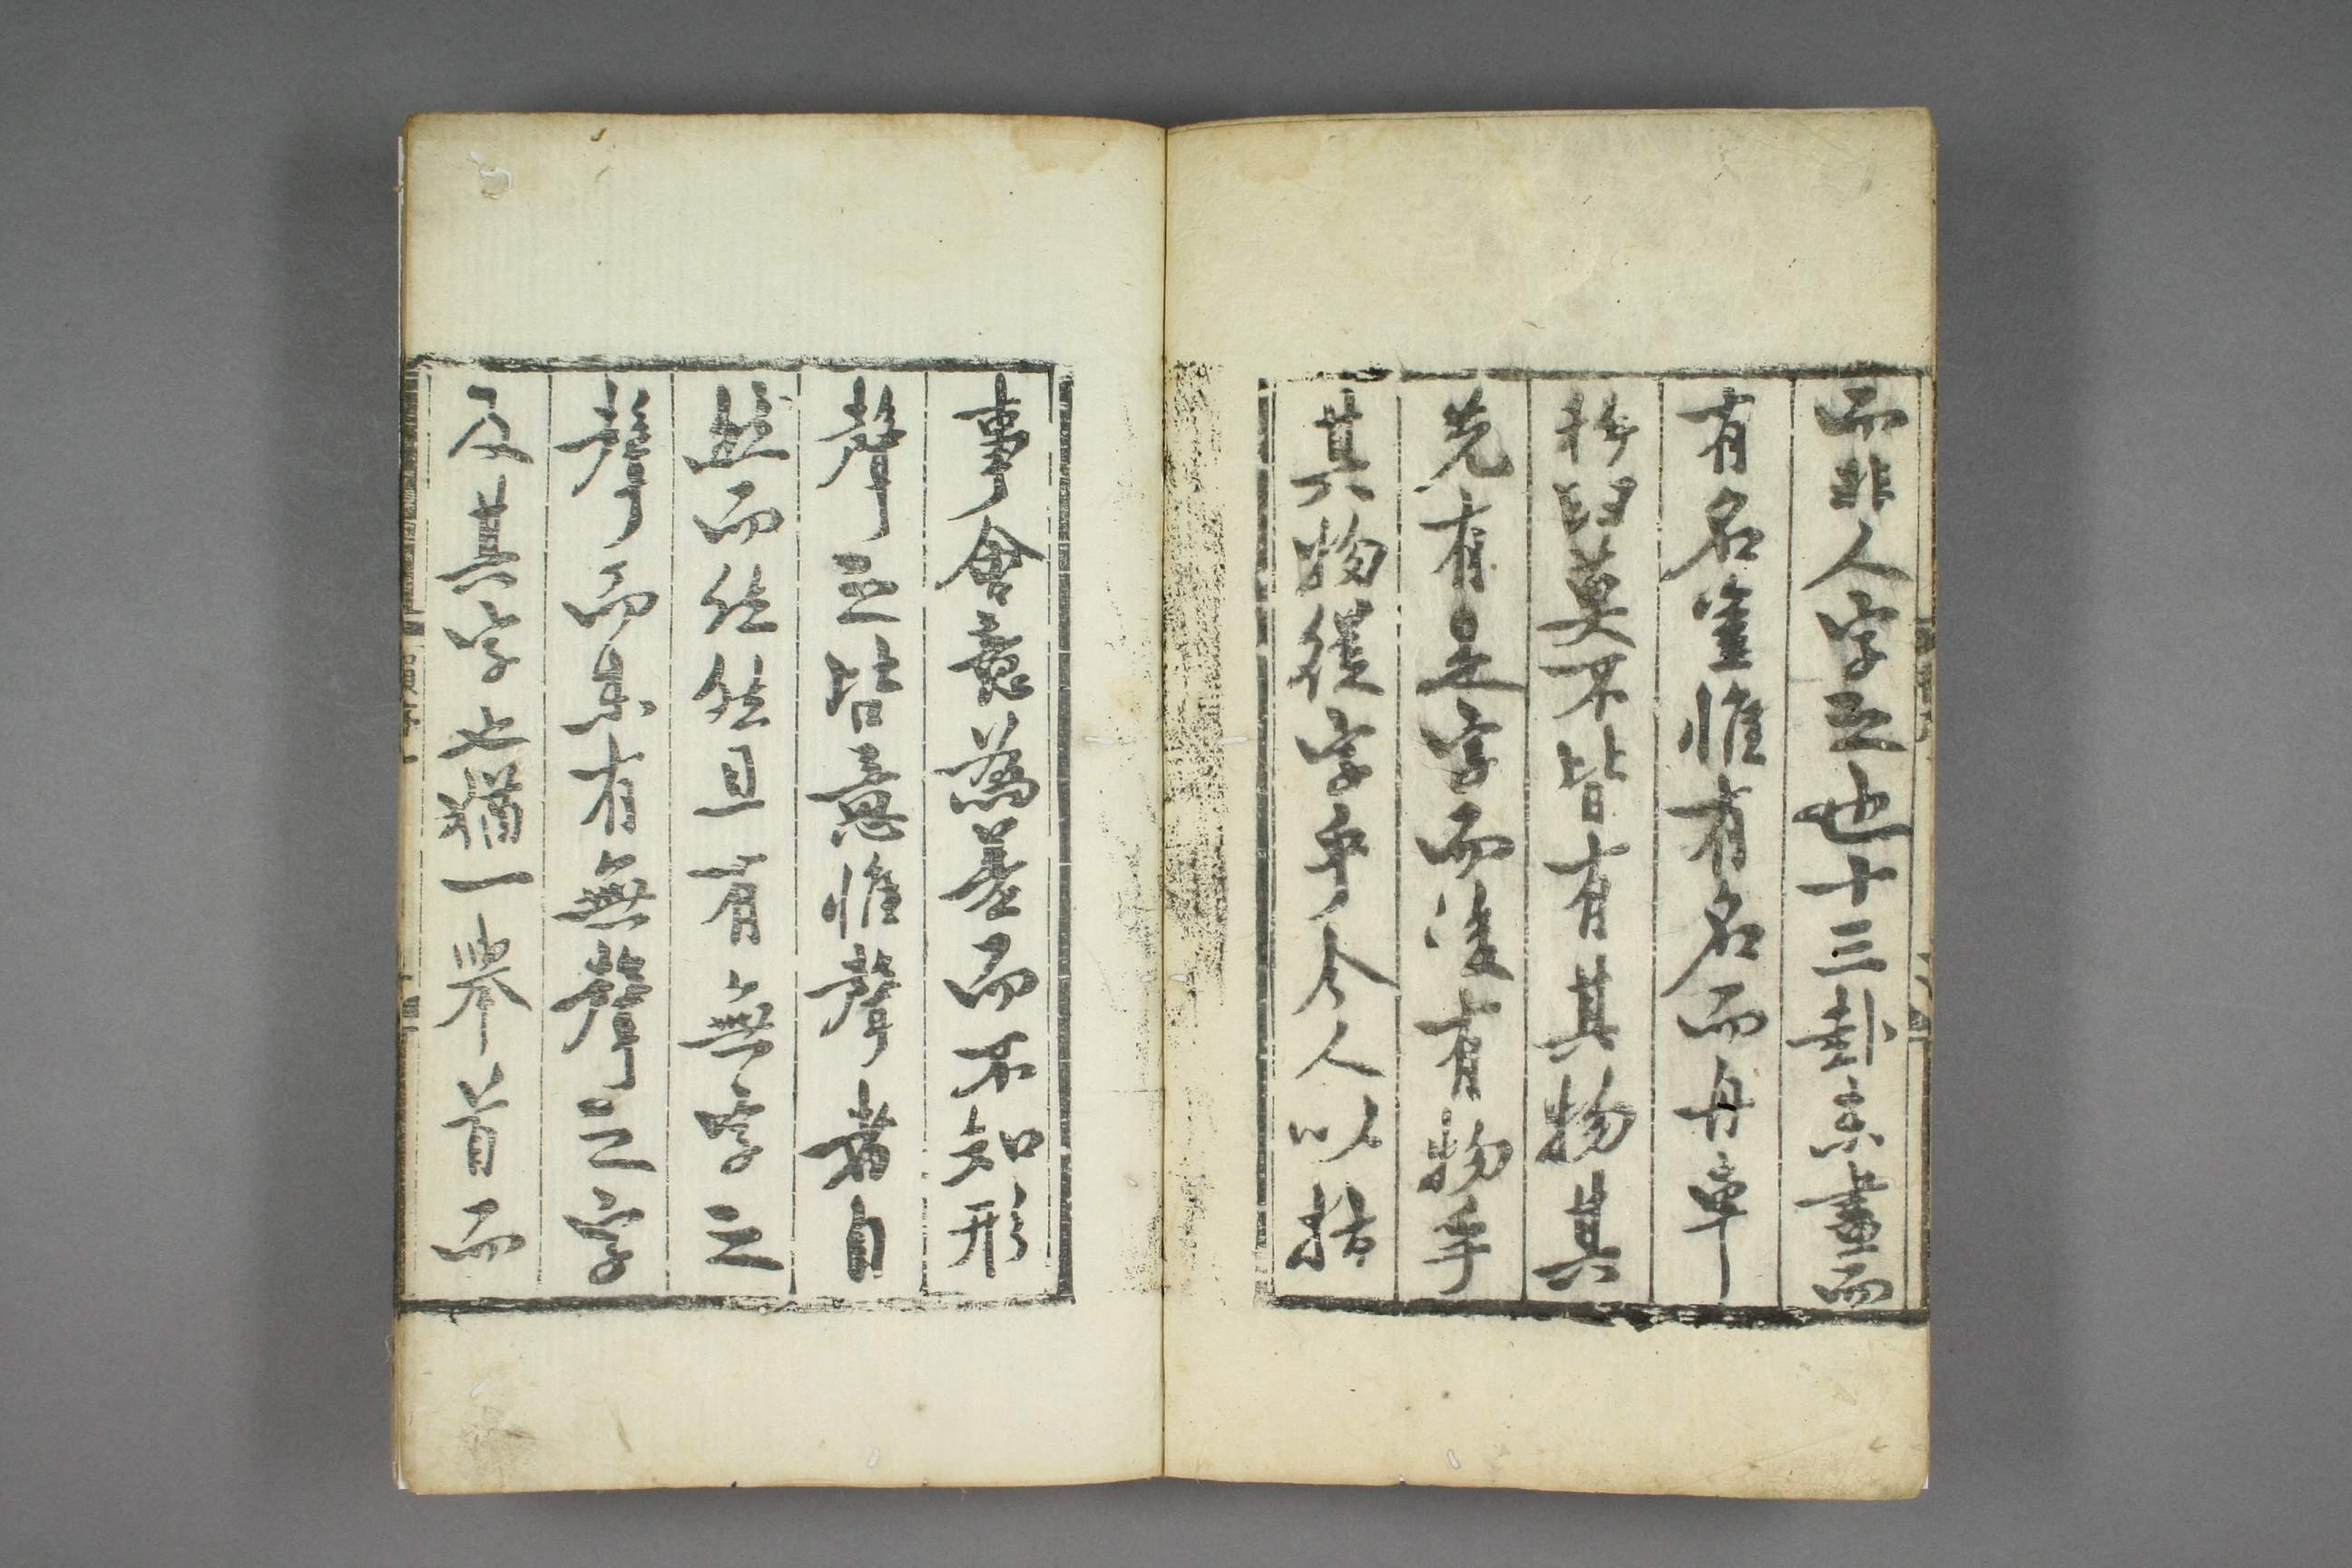 而非人字之也十三卦未畫而
有名室惟有名而舟車
杵臼莫不皆有其物其
先有是字而後有物乎
其物後字乎今人以指
事會意爲差而不知形
聲之皆意惟聲者自
然而然然且有無字之
聲而未有無聲之字
及其字也譬一舉首而